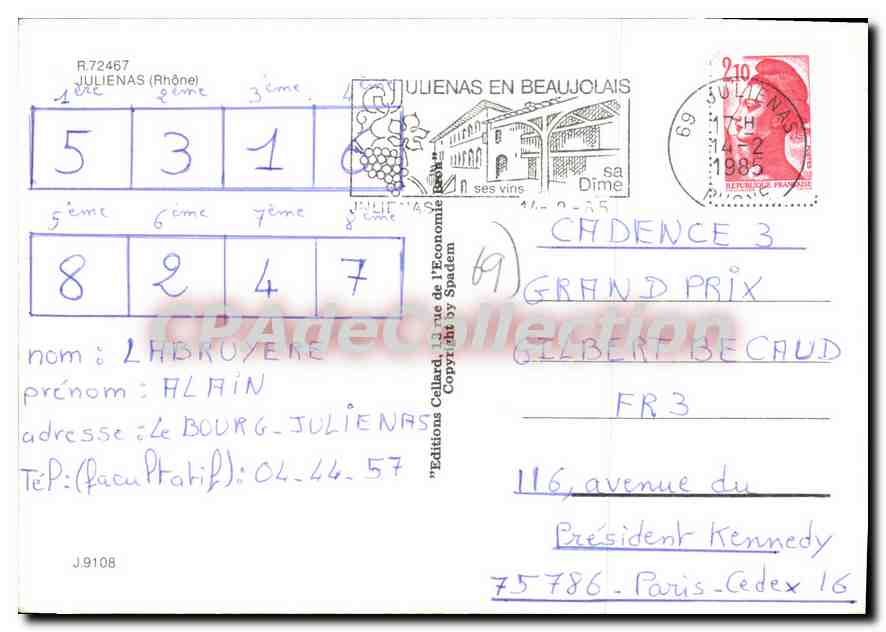 R.72467
JULIENAS (Rhône)
1ère 2ème 3ème 4ème
5 3 1 6
5ème 6ème 7ème 8ème
8 2 4 7
nom : LABRUYERE
prénom : ALAIN
adresse : Le BOURG - JULIENAS
Tél : (facultatif) : 04-44-57
J.9108
"Editions Cellard, 13 rue de l'Economie Bron"
Copyright by Spadem
JULIENAS EN BEAUJOLAIS
ses vins
sa
Dîme
JULIENAS
69 JULIENAS
17 H
14-2
1985
RHONE
2,10
REPUBLIQUE FRANÇAISE
69)
CADENCE 3
GRAND PRIX
GILBERT BECAUD
FR3
116, avenue du
Président Kennedy
75786 - Paris - Cedex 16
CPAdeCollection